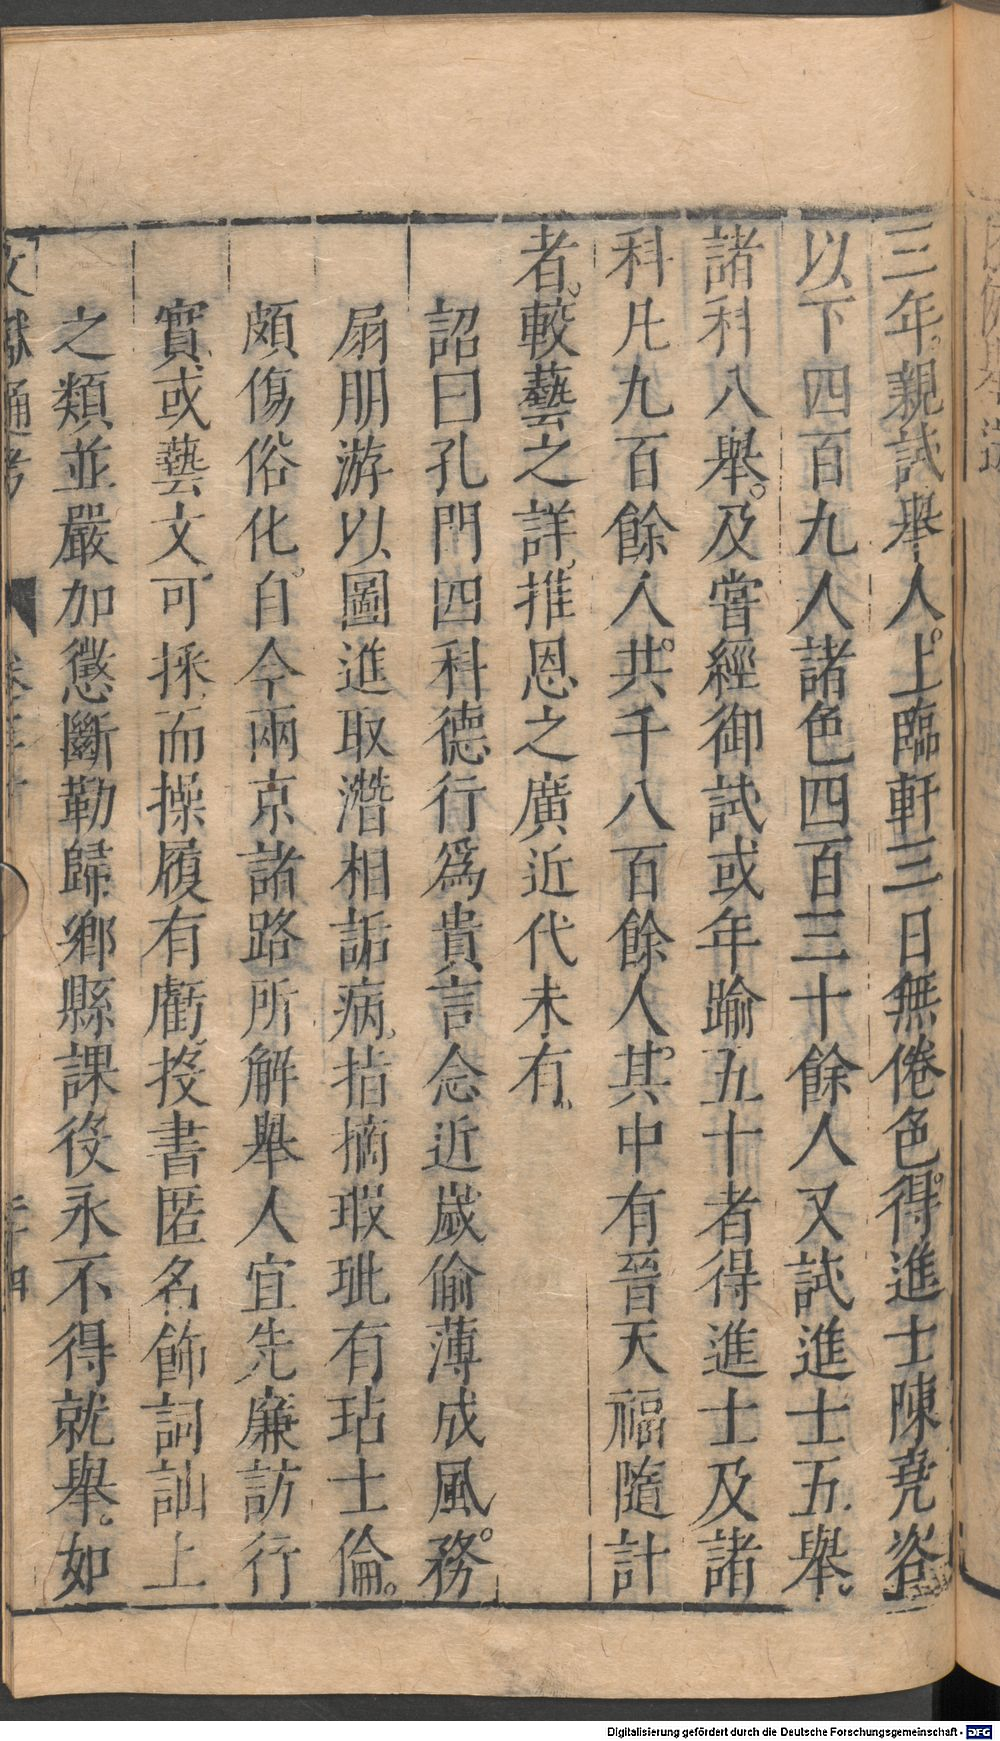 三年親試舉人上臨軒三日無倦色得進士陳堯咨
以下四百九人諸色四百三十餘人又試進士五舉
諸科八舉及嘗經御試或年踰五十者得進士及諸
科凡九百餘人共千八百餘人其中有晉天福隨計
者較藝之詳推恩之廣近代未有
詔曰孔門四科德行爲貴言念近歲偷薄成風務
扇朋游以圖進取潛相詬病指摘瑕玼有玷士倫
頗傷俗化自今兩京諸路所解舉人宜先廉訪行
實或藝文可採而操履有虧投書匿名飾詞訕上
之類並嚴加懲斷勒歸鄉縣課役永不得就舉如
文獻通考
Digitalisierung gefördert durch die Deutsche Forschungsgemeinschaft - DFG